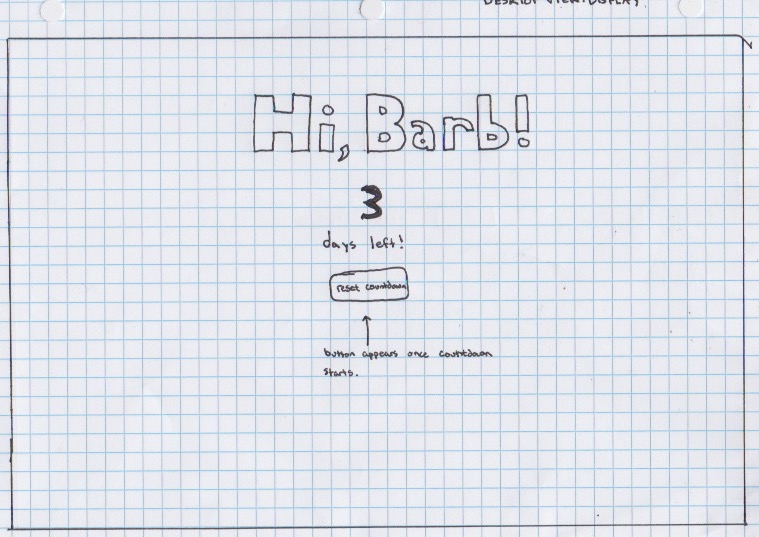 DESKTOP VIEW/DISPLAY
Hi, Barb!
3
days left!
reset countdown
button appears once countdown
starts.